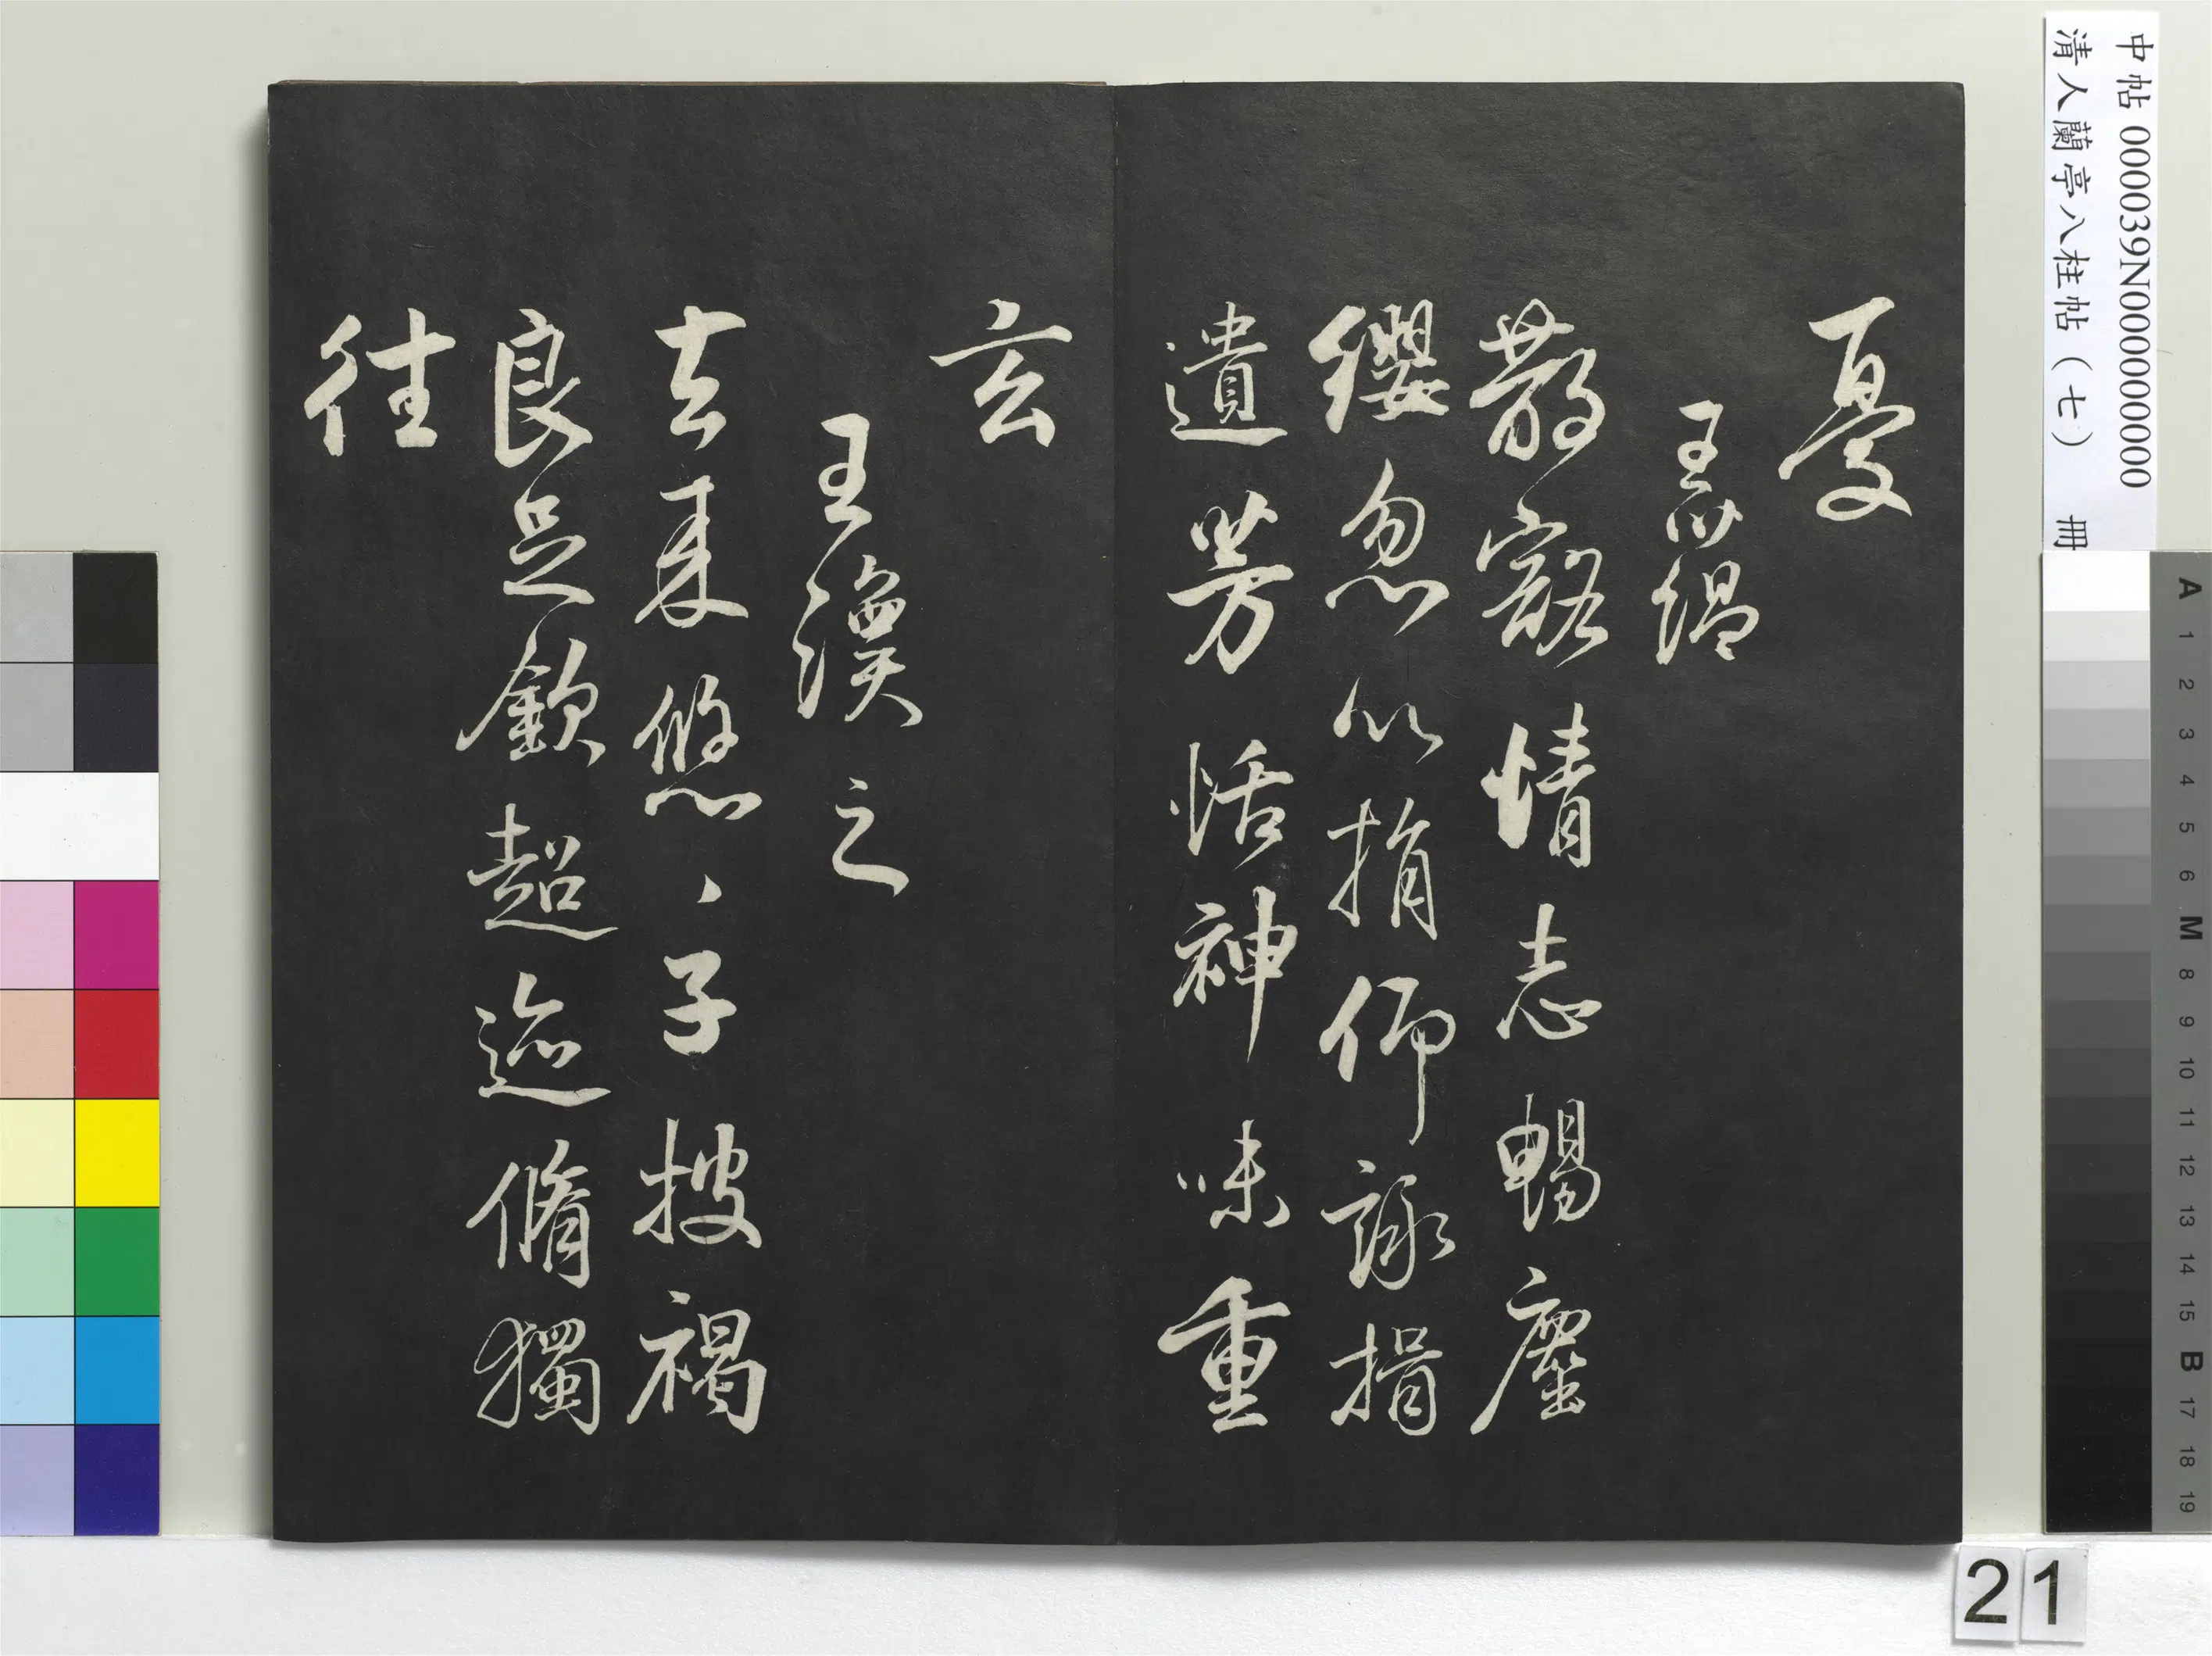 憂
王蘊
散豁情志暢塵
纓忽以捐仰詠揖
遺芳恬神味重
玄
王渙之
去來悠〻子披褐
良足欽超迹脩獨
往
中帖 000039N000000000
清人蘭亭八柱帖（七） 冊
A 1 2 3 4 5 6 M 8 9 10 11 12 13 14 15 B 17 18 19
21